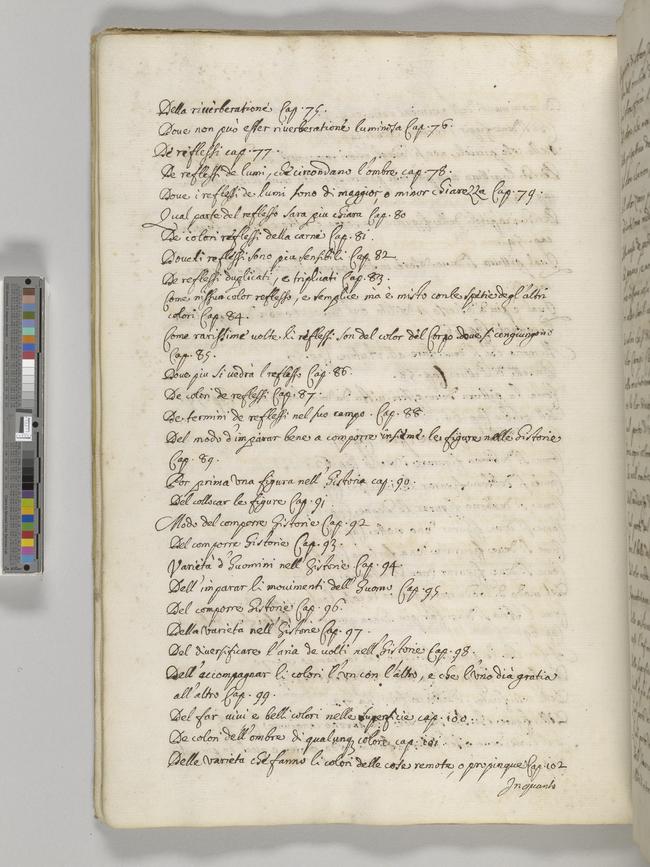 Della riverberatione Cap. 75.
Dove non può esser riverberatione luminosa Cap. 76.
De reflessi cap. 77.
De reflessi de lumi, che circondano l'ombre cap. 78.
Dove i reflessi de lumi sono di maggior, o minor chiarezza Cap. 79.
Qual parte del reflesso sara piu chiara Cap. 80
De colori reflessi della carne Cap. 81.
Dove li reflessi sono piu sensibili Cap. 82
De reflessi duplicati, e triplicati Cap. 83.
Come nissun color reflesso, e semplice ma è misto con le spetie degl'altri
colori Cap. 84.
Come rarissime volte li reflessi son del color del Corpo dove si congiungono
Cap. 85.
Dove piu si vedrà l reflesso Cap. 86.
De colori de reflessi Cap. 87.
De termini de reflessi nel suo campo. Cap. 88.
Del modo d'imparar bene a comporre insieme le figure nelle historie
Cap. 89.
Por prima una figura nell'historia cap. 90.
Del collocar le figure Cap. 91
Modo del comporre historie Cap. 92
Del comporre historie Cap. 93.
Varietà d'huomini nell'historie Cap. 94
Dell'imparar li movimenti dell'huomo Cap. 95
Del comporre historie Cap. 96.
Della varietà nell'historie Cap. 97.
Del diversificare l'aria de volti nell'historie Cap. 98.
Dell'accompagnar li colori l'un con l'altro, e che l'uno dia gratia
all'altro Cap. 99.
Del far vivi e belli colori nelle superficie cap. 100.
De colori dell'ombre di qualunq colore cap. 101
Delle varietà che fanno li colori delle cose remote, o propinque Cap. 102
Inquanto